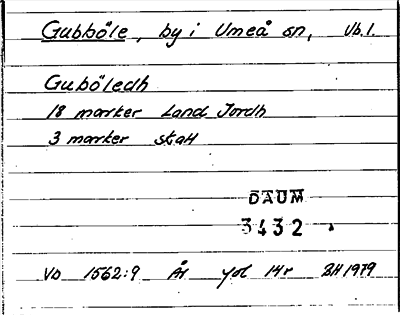 Gubböle, by i Umeå sn, Vb.l.
Guböledh
18 marker Land Jordh
3 marker skatt
DAUM
3432
Vb 1562:9 År fol 14r BH 1979